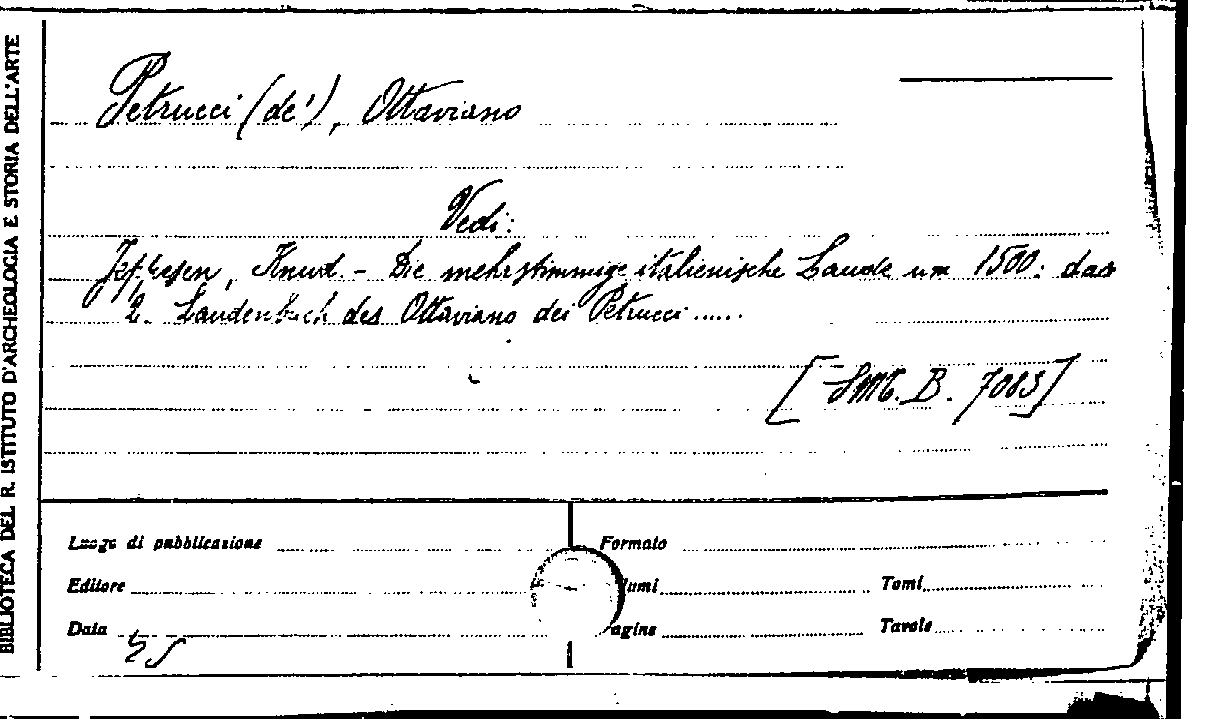 BIBLIOTECA DEL R. ISTITUTO D'ARCHEOLOGIA E STORIA DELL'ARTE
Petrucci (de'), Ottaviano
Vedi:
Jeppesen, Knud. - Die mehrstimmige italienische Laude um 1500: das
2. Laudenbuch des Ottaviano dei Petrucci......
[SMt. B. 7083]
Luogo di pubblicazione Formato
Editore lumi Tomi
Data agine Tavole